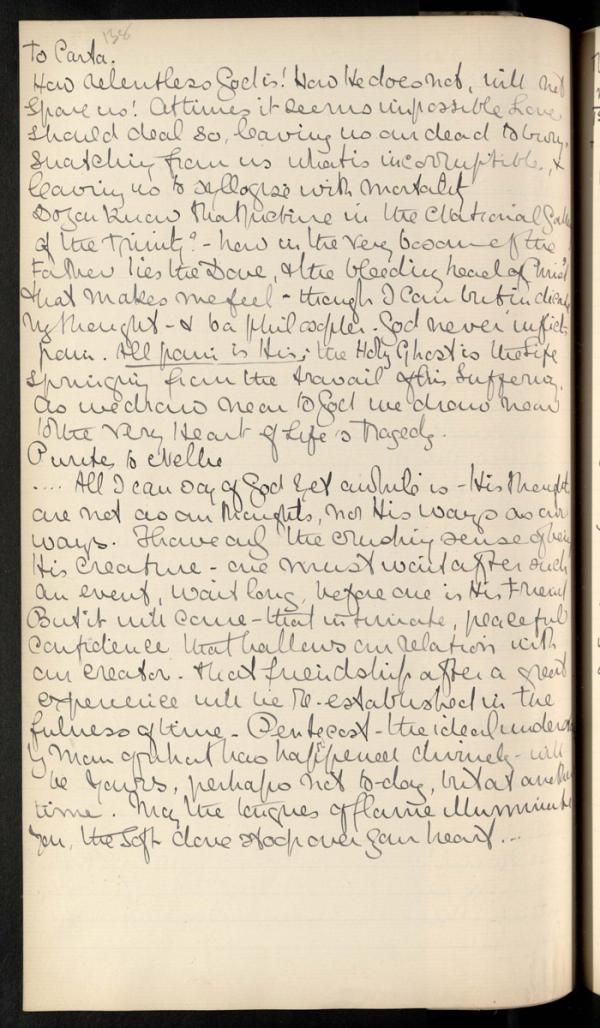 138
To Carta.
How relentless God is! How He does not, will not
spare us! At times it seems impossible Love
should deal so, leaving us our dead to bury,
snatching from us what is incorruptible, &
leaving us to syllogise with mortality
Do you know that picture in the National Gall
of the Trinity? - how in the very bosom of the
Father lies the Dove, & the bleeding head of Christ
that makes me feel - though I can but indicate
my thought - & be a philosopher. God never inflicts
pain. All pain is His; the Holy Ghost is the Life
springing from the travail of His Suffering.
As we draw near to God we draw near
to the very Heart of Life's Tragedy.
P writes to Nellie
.... All I can say of God yet awhile is - His thoughts
are not as our thoughts, nor His ways as our
ways. I have only the crushing sense of being
His creature - one must wait after such
an event, wait long, before one is His Friend
But it will come - that intimate, peaceful
confidence that hallows our relation with
our creator. That friendship after a great
experience will be re-established in the
fulness of time - Pentecost - the ideal underst
by Man of what has happened divinely - will
be yours, perhaps not to-day, but at another
time. May the tongues of flame illuminate
you, the soft dove stoop over your heart ...